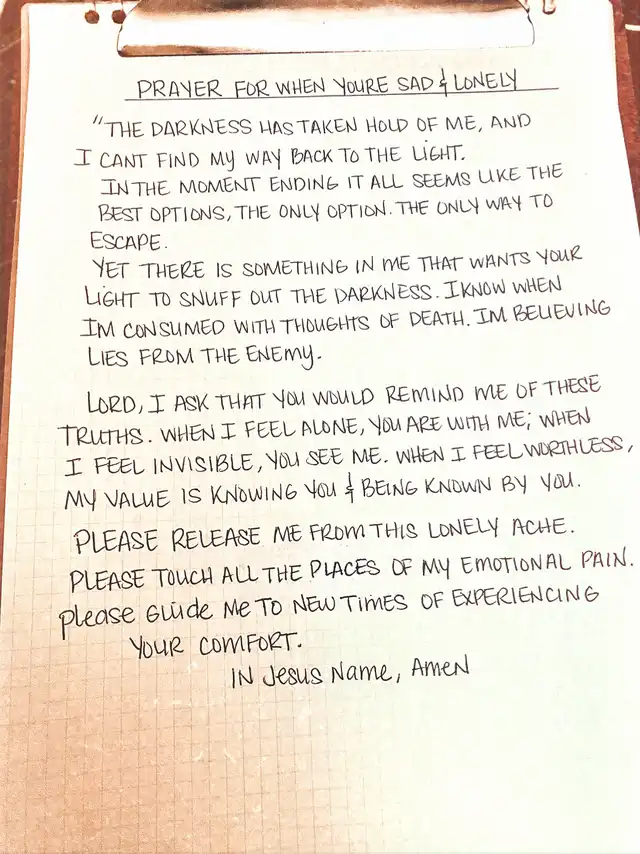 PRAYER FOR WHEN YOURE SAD & LONELY
"THE DARKNESS HAS TAKEN HOLD OF ME, AND
I CANT FIND MY WAY BACK TO THE LIGHT.
IN THE MOMENT ENDING IT ALL SEEMS LIKE THE
BEST OPTIONS, THE ONLY OPTION. THE ONLY WAY TO
ESCAPE.
YET THERE IS SOMETHING IN ME THAT WANTS YOUR
LIGHT TO SNUFF OUT THE DARKNESS. I KNOW WHEN
IM CONSUMED WITH THOUGHTS OF DEATH. IM BELIEVING
LIES FROM THE ENEMY.
LORD, I ASK THAT YOU WOULD REMIND ME OF THESE
TRUTHS. WHEN I FEEL ALONE, YOU ARE WITH ME; WHEN
I FEEL INVISIBLE, YOU SEE ME. WHEN I FEEL WORTHLESS,
MY VALUE IS KNOWING YOU & BEING KNOWN BY YOU.
PLEASE RELEASE ME FROM THIS LONELY ACHE.
PLEASE TOUCH ALL THE PLACES OF MY EMOTIONAL PAIN.
Please GUIDE ME TO NEW TIMES OF EXPERIENCING
YOUR COMFORT.
IN JESUS NAME, AMEN